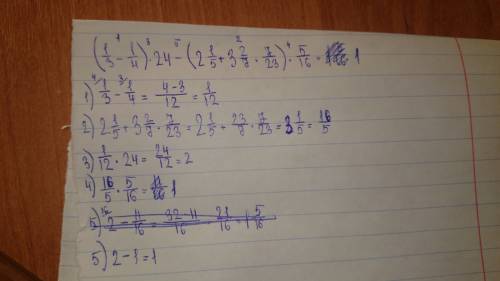 (1/3 - 1/4) · 24 - (2 1/5 + 3 2/7 · 7/23) · 5/16 = 1
1) 1/3 - 1/4 = (4-3)/12 = 1/12
2) 2 1/5 + 3 2/7 · 7/23 = 2 1/5 + 23/7 · 7/23 = 3 1/5 = 16/5
3) 1/12 · 24 = 24/12 = 2
4) 16/5 · 5/16 = 1
5) 2 - 11/16 = (32-11)/16 = 21/16 = 1 5/16
5) 2 - 1 = 1